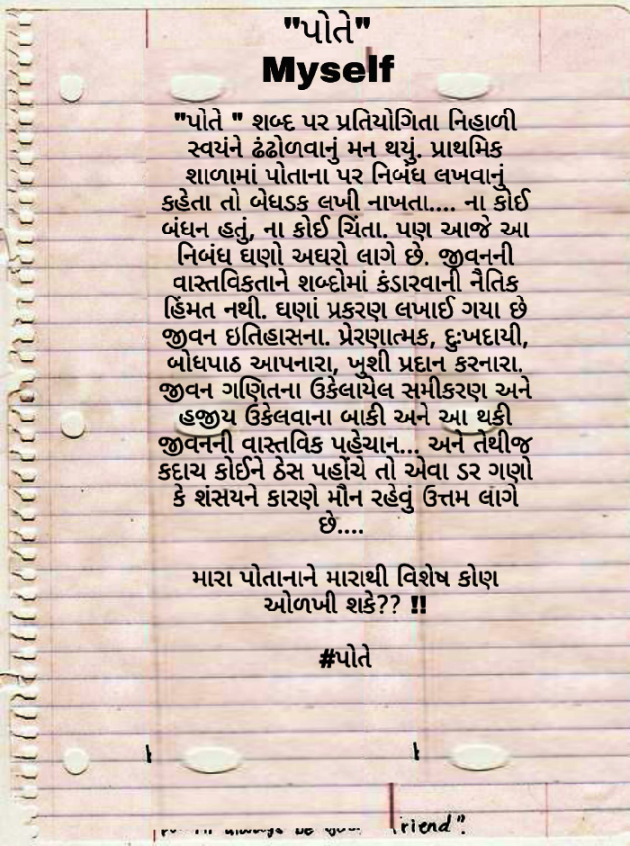 "પોતે"
Myself
"પોતે " શબ્દ પર પ્રતિયોગિતા નિહાળી
સ્વયંને ઢંઢોળવાનું મન થયું. પ્રાથમિક
શાળામાં પોતાના પર નિબંધ લખવાનું
કહેતા તો બેધડક લખી નાખતા.... ના કોઈ
બંધન હતું, ના કોઈ ચિંતા. પણ આજે આ
નિબંધ ઘણો અઘરો લાગે છે. જીવનની
વાસ્તવિકતાને શબ્દોમાં કંડારવાની નૈતિક
હિંમત નથી. ઘણાં પ્રકરણ લખાઈ ગયા છે
જીવન ઇતિહાસના. પ્રેરણાત્મક, દુઃખદાયી,
બોધપાઠ આપનારા, ખુશી પ્રદાન કરનારા.
જીવન ગણિતના ઉકેલાયેલ સમીકરણ અને
હજીય ઉકેલવાના બાકી અને આ થકી
જીવનની વાસ્તવિક પહેચાન... અને તેથીજ
કદાચ કોઈને ઠેસ પહોંચે તો એવા ડર ગણો
કે શંસયને કારણે મૌન રહેવું ઉત્તમ લાગે
છે....
મારા પોતાનાને મારાથી વિશેષ કોણ
ઓળખી શકે?? !!
#પોતે
always be your friend".